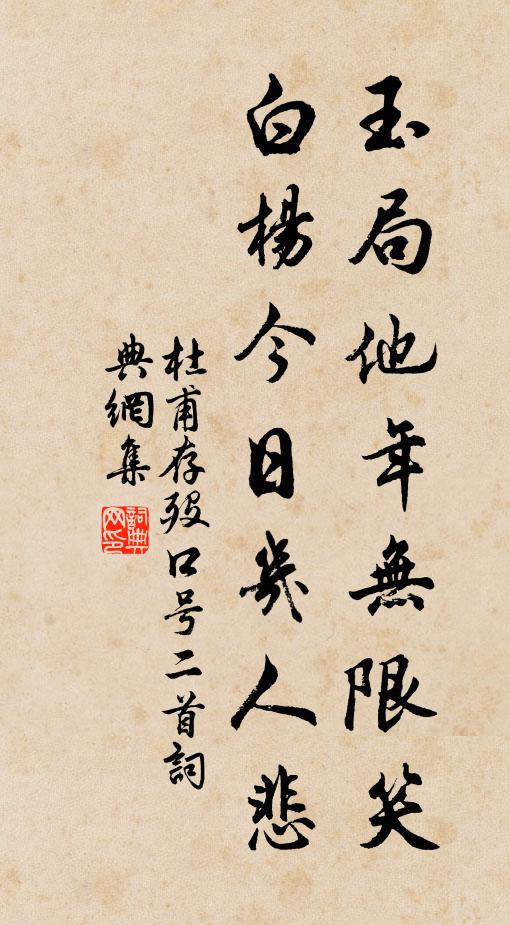 玉局他年無限笑
白楊今日幾人悲
杜甫存歿口号二首詞
典網集
詞典
网印